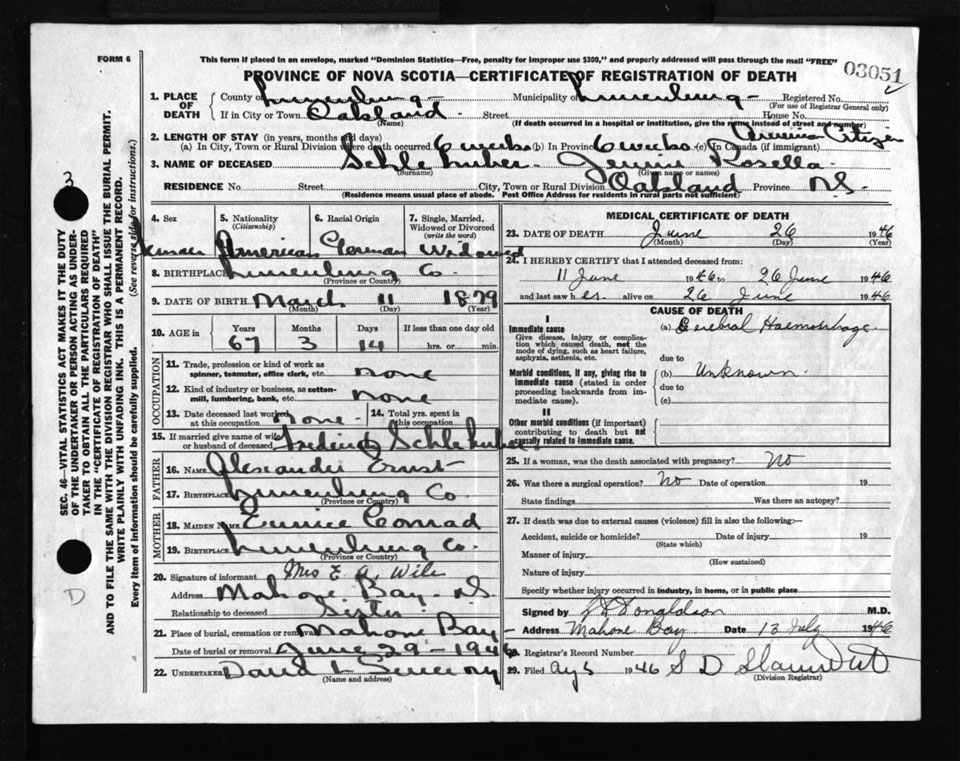 FORM 6
This form if placed in an envelope, marked "Dominion Statistics—Free, penalty for improper use $300," and properly addressed will pass through the mail "FREE"
PROVINCE OF NOVA SCOTIA—CERTIFICATE OF REGISTRATION OF DEATH
03051
1. PLACE OF DEATH
County of Lunenburg Municipality of Lunenburg Registered No.
(For use of Registrar General only)
If in City or Town Oakland Street House No.
(Name) (If death occurred in a hospital or institution, give the name instead of street and number)
American Citizen
2. LENGTH OF STAY (in years, months and days)
(a) In City, Town or Rural Division where death occurred 6 weeks (b) In Province 6 weeks (c) In Canada (if immigrant)
3. NAME OF DECEASED Schlehuber Jennie Rosella
(Surname) (Given name or names)
RESIDENCE No. Street City, Town or Rural Division Oakland Province N.S.
(Residence means usual place of abode. Post Office Address for residents in rural parts not sufficient)
SEC. 46—VITAL STATISTICS ACT MAKES IT THE DUTY
OF THE UNDERTAKER OR PERSON ACTING AS UNDER-
TAKER TO OBTAIN ALL THE PARTICULARS REQUIRED
IN THE "CERTIFICATE OF REGISTRATION OF DEATH"
AND TO FILE THE SAME WITH THE DIVISION REGISTRAR WHO SHALL ISSUE THE BURIAL PERMIT.
WRITE PLAINLY WITH UNFADING INK. THIS IS A PERMANENT RECORD.
Every item of information should be carefully supplied. (See reverse side for instructions.)
3
D
4. Sex
5. Nationality (Citizenship) American
6. Racial Origin German
7. Single, Married, Widowed or Divorced (write the word) Widowed
8. BIRTHPLACE Lunenburg Co.
(Province or Country)
9. DATE OF BIRTH March 11 1879
(Month) (Day) (Year)
10. AGE in Years Months Days If less than one day old
67 3 14 hrs. or min.
OCCUPATION
11. Trade, profession or kind of work as spinner, teamster, office clerk, etc. none
12. Kind of industry or business, as cotton-mill, lumbering, bank, etc. none
13. Date deceased last worked at this occupation none 14. Total yrs. spent in this occupation
15. If married give name of wife or husband of deceased Schlehuber
FATHER
16. NAME Alexander Ernst
17. BIRTHPLACE Lunenburg Co.
(Province or Country)
MOTHER
18. MAIDEN NAME Eunice Conrad
19. BIRTHPLACE Lunenburg Co.
(Province or Country)
20. Signature of informant Mrs E. A. Wile
Address Mahone Bay N.S.
Relationship to deceased Sister
21. Place of burial, cremation or removal Mahone Bay
Date of burial or removal June 29-1946
22. UNDERTAKER David L
(Name and address)
MEDICAL CERTIFICATE OF DEATH
23. DATE OF DEATH June 26 1946
(Month) (Day) (Year)
24. I HEREBY CERTIFY that I attended deceased from:
11 June 1946 to 26 June 1946
and last saw her alive on 26 June 1946
CAUSE OF DEATH
I
Immediate cause
Give disease, injury or complication which caused death, not the mode of dying, such as heart failure, asphyxia, asthenia, etc.
(a) Cerebral Haemorrhage
due to
Morbid conditions, if any, giving rise to immediate cause (stated in order proceeding backwards from immediate cause).
(b) Unknown.
due to
(c)
II
Other morbid conditions (if important) contributing to death but not causally related to immediate cause.
25. If a woman, was the death associated with pregnancy? No
26. Was there a surgical operation? No Date of operation 19
State findings Was there an autopsy?
27. If death was due to external causes (violence) fill in also the following:—
Accident, suicide or homicide? Date of injury 19
(State which)
Manner of injury
(How sustained)
Nature of injury
Specify whether injury occurred in industry, in home, or in public place
Signed by Donaldson M.D.
Address Mahone Bay Date 13 July 1946
28. Registrar's Record Number
29. Filed Aug 5 1946 S D
(Division Registrar)